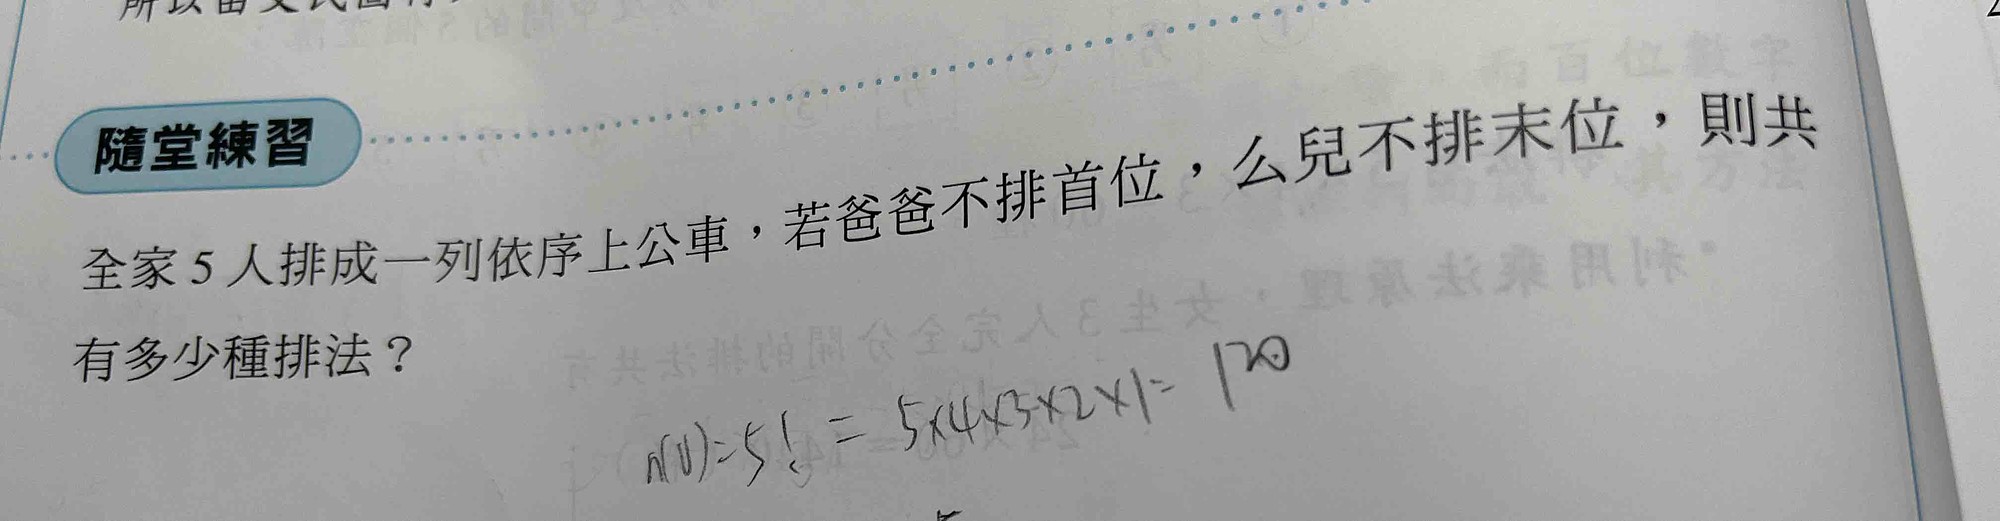 所以當文氏圖有
隨堂練習
全家5人排成一列依序上公車，若爸爸不排首位，么兒不排末位，則共
有多少種排法？
n(U)=5! = 5×4×3×2×1= 120